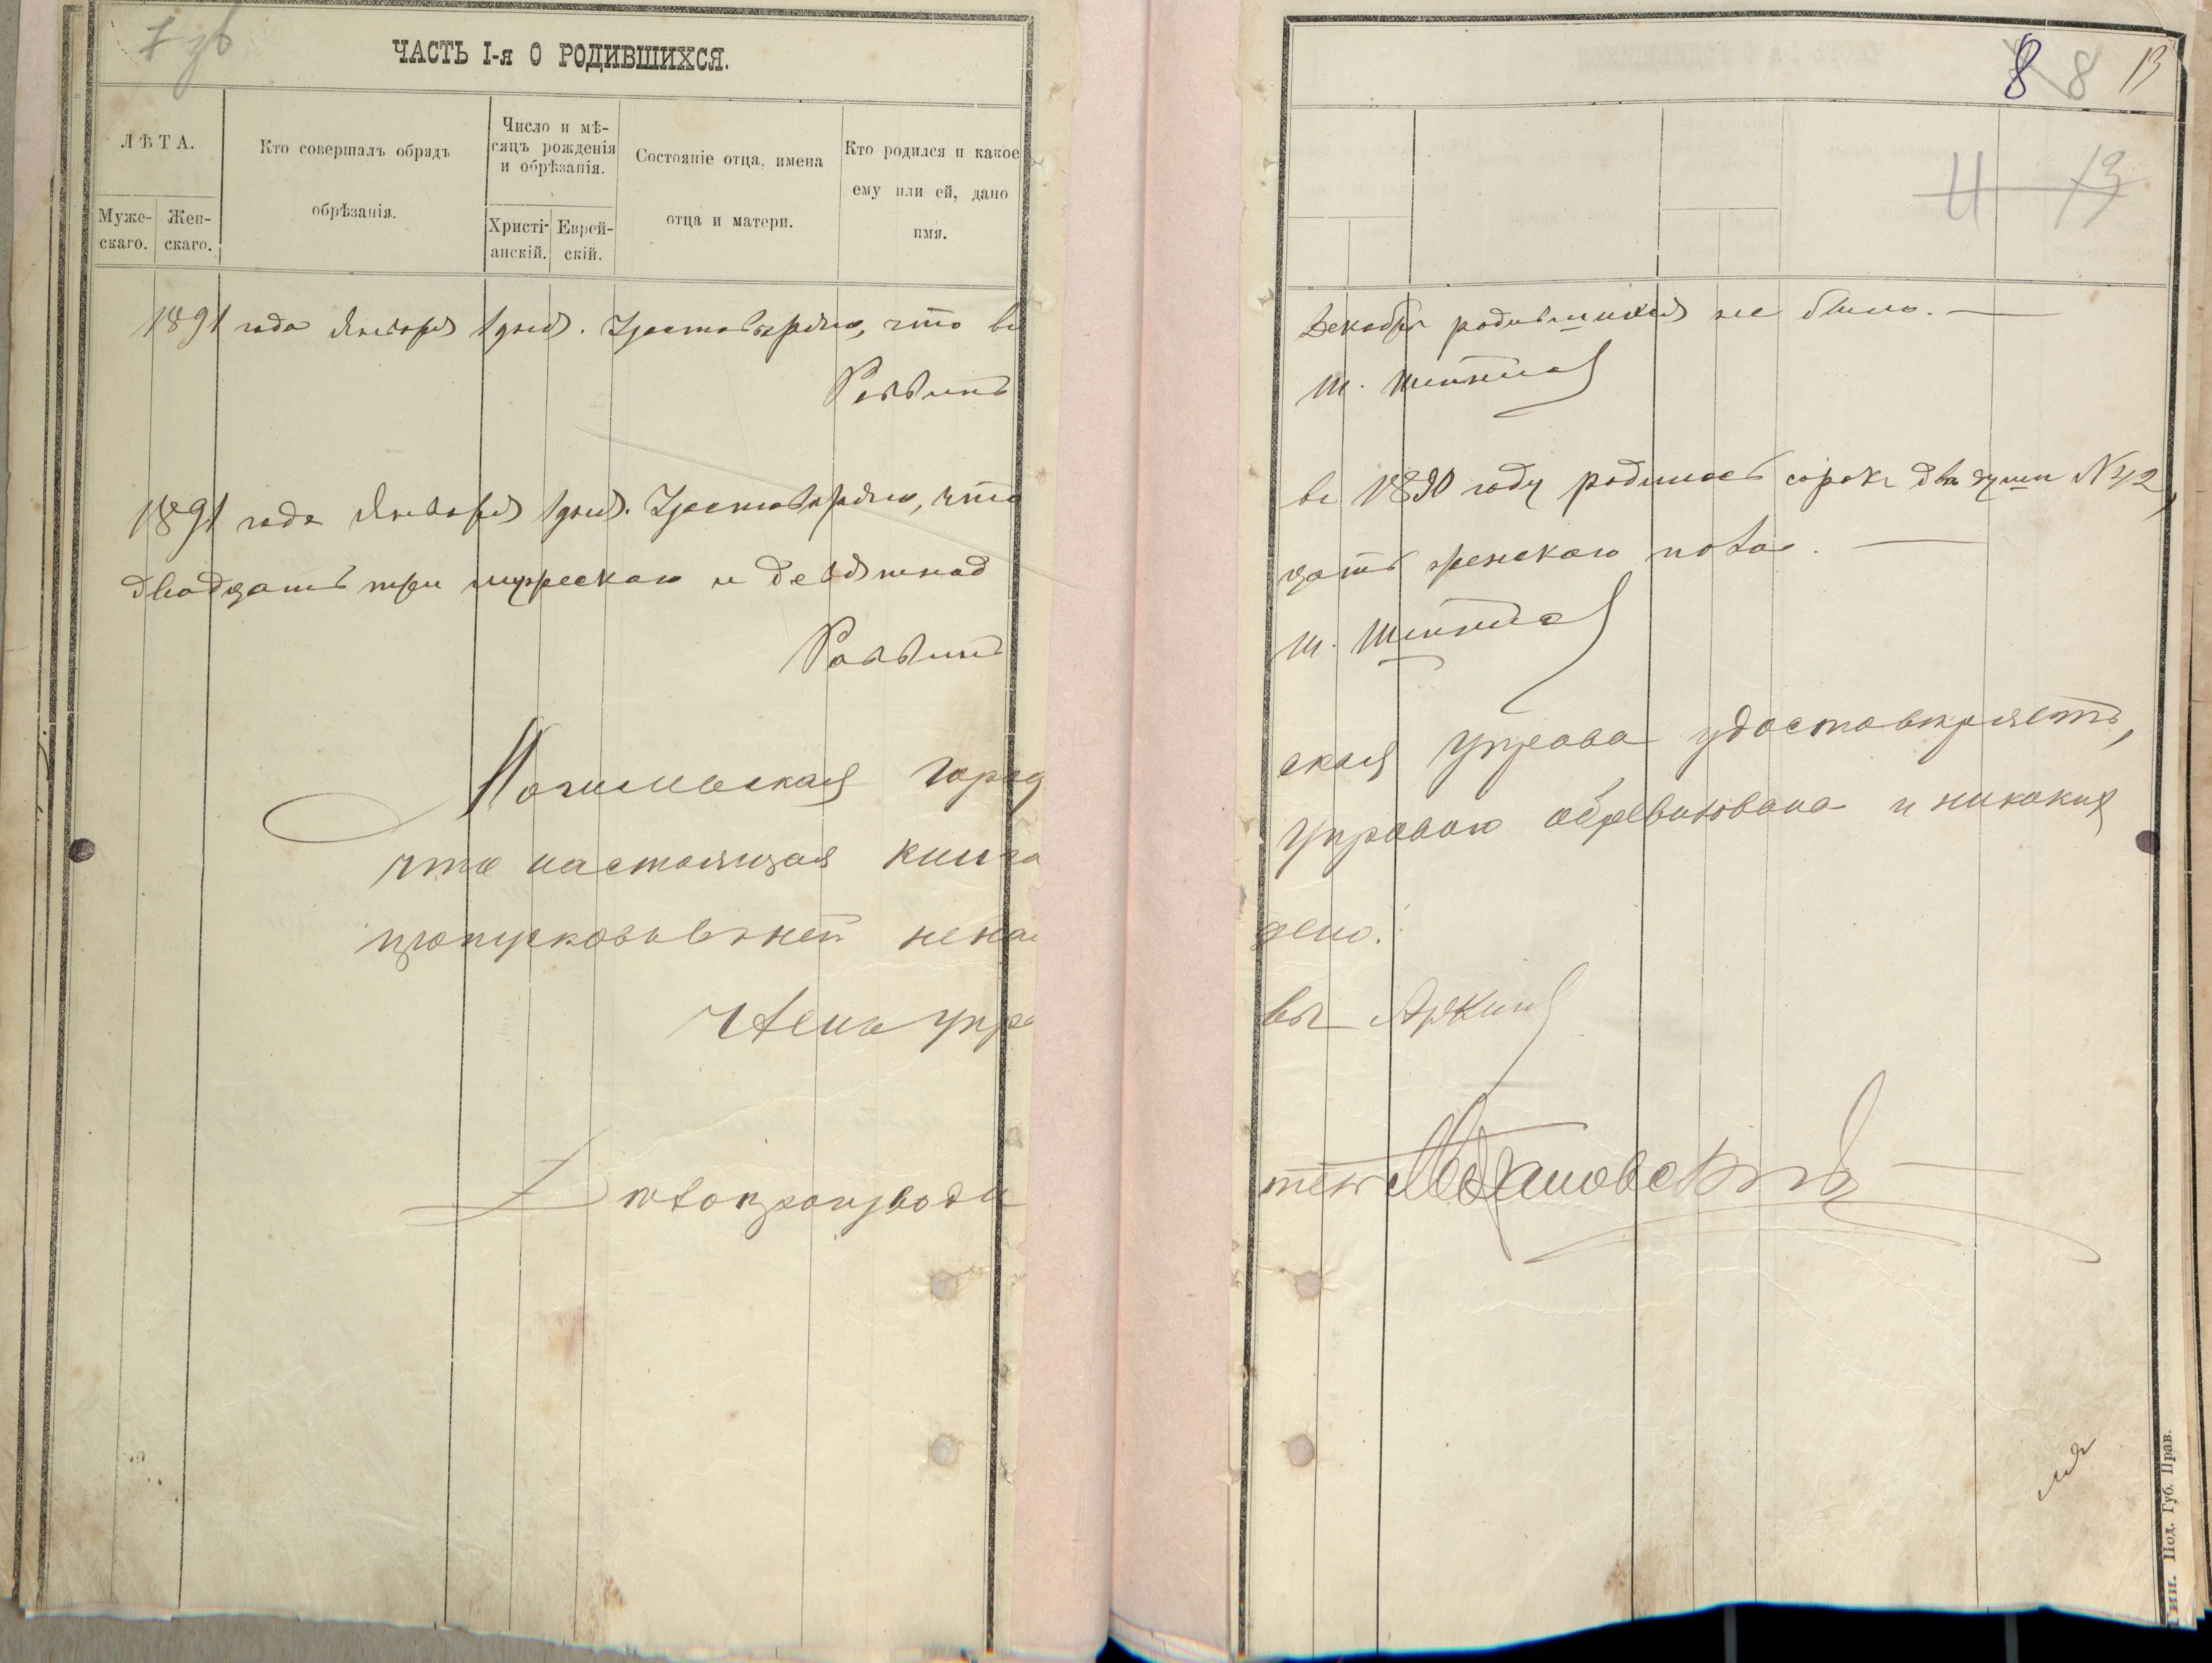 7 об
ЧАСТЬ I-я О РОДИВШИХСЯ.
ЛѢТА.
Муже-
скаго.
Жен-
скаго.
Кто совершалъ обрядъ
обрѣзанія.
Число и мѣ-
сяцъ рожденія
и обрѣзанія.
Христі-
анскій.
Еврей-
скій.
Состояніе отца, имена
отца и матери.
Кто родился и какое
ему или ей, дано
имя.
1891 года Января 1 дня. Удостовѣряю, что въ
Раввинъ
1891 года Января 1 дня. Удостовѣряю, что
двадцать три мужескаго и девятнад
Раввинъ
Могилевская Город
что настоящая книга
пропусковъ въ ней не най
Членъ Упра
Дѣлопроизводи
8 8 13
11 13
Декабрѣ родившихся не было.
Ш.
въ 1890 году родилось сорокъ два души № 42,
цать женскаго пола.
Ш.
ская Управа удостовѣряетъ,
Управою обревизована и никакихъ
дено.
вы Аркинъ
тель
Тип. Под. Губ. Прав.